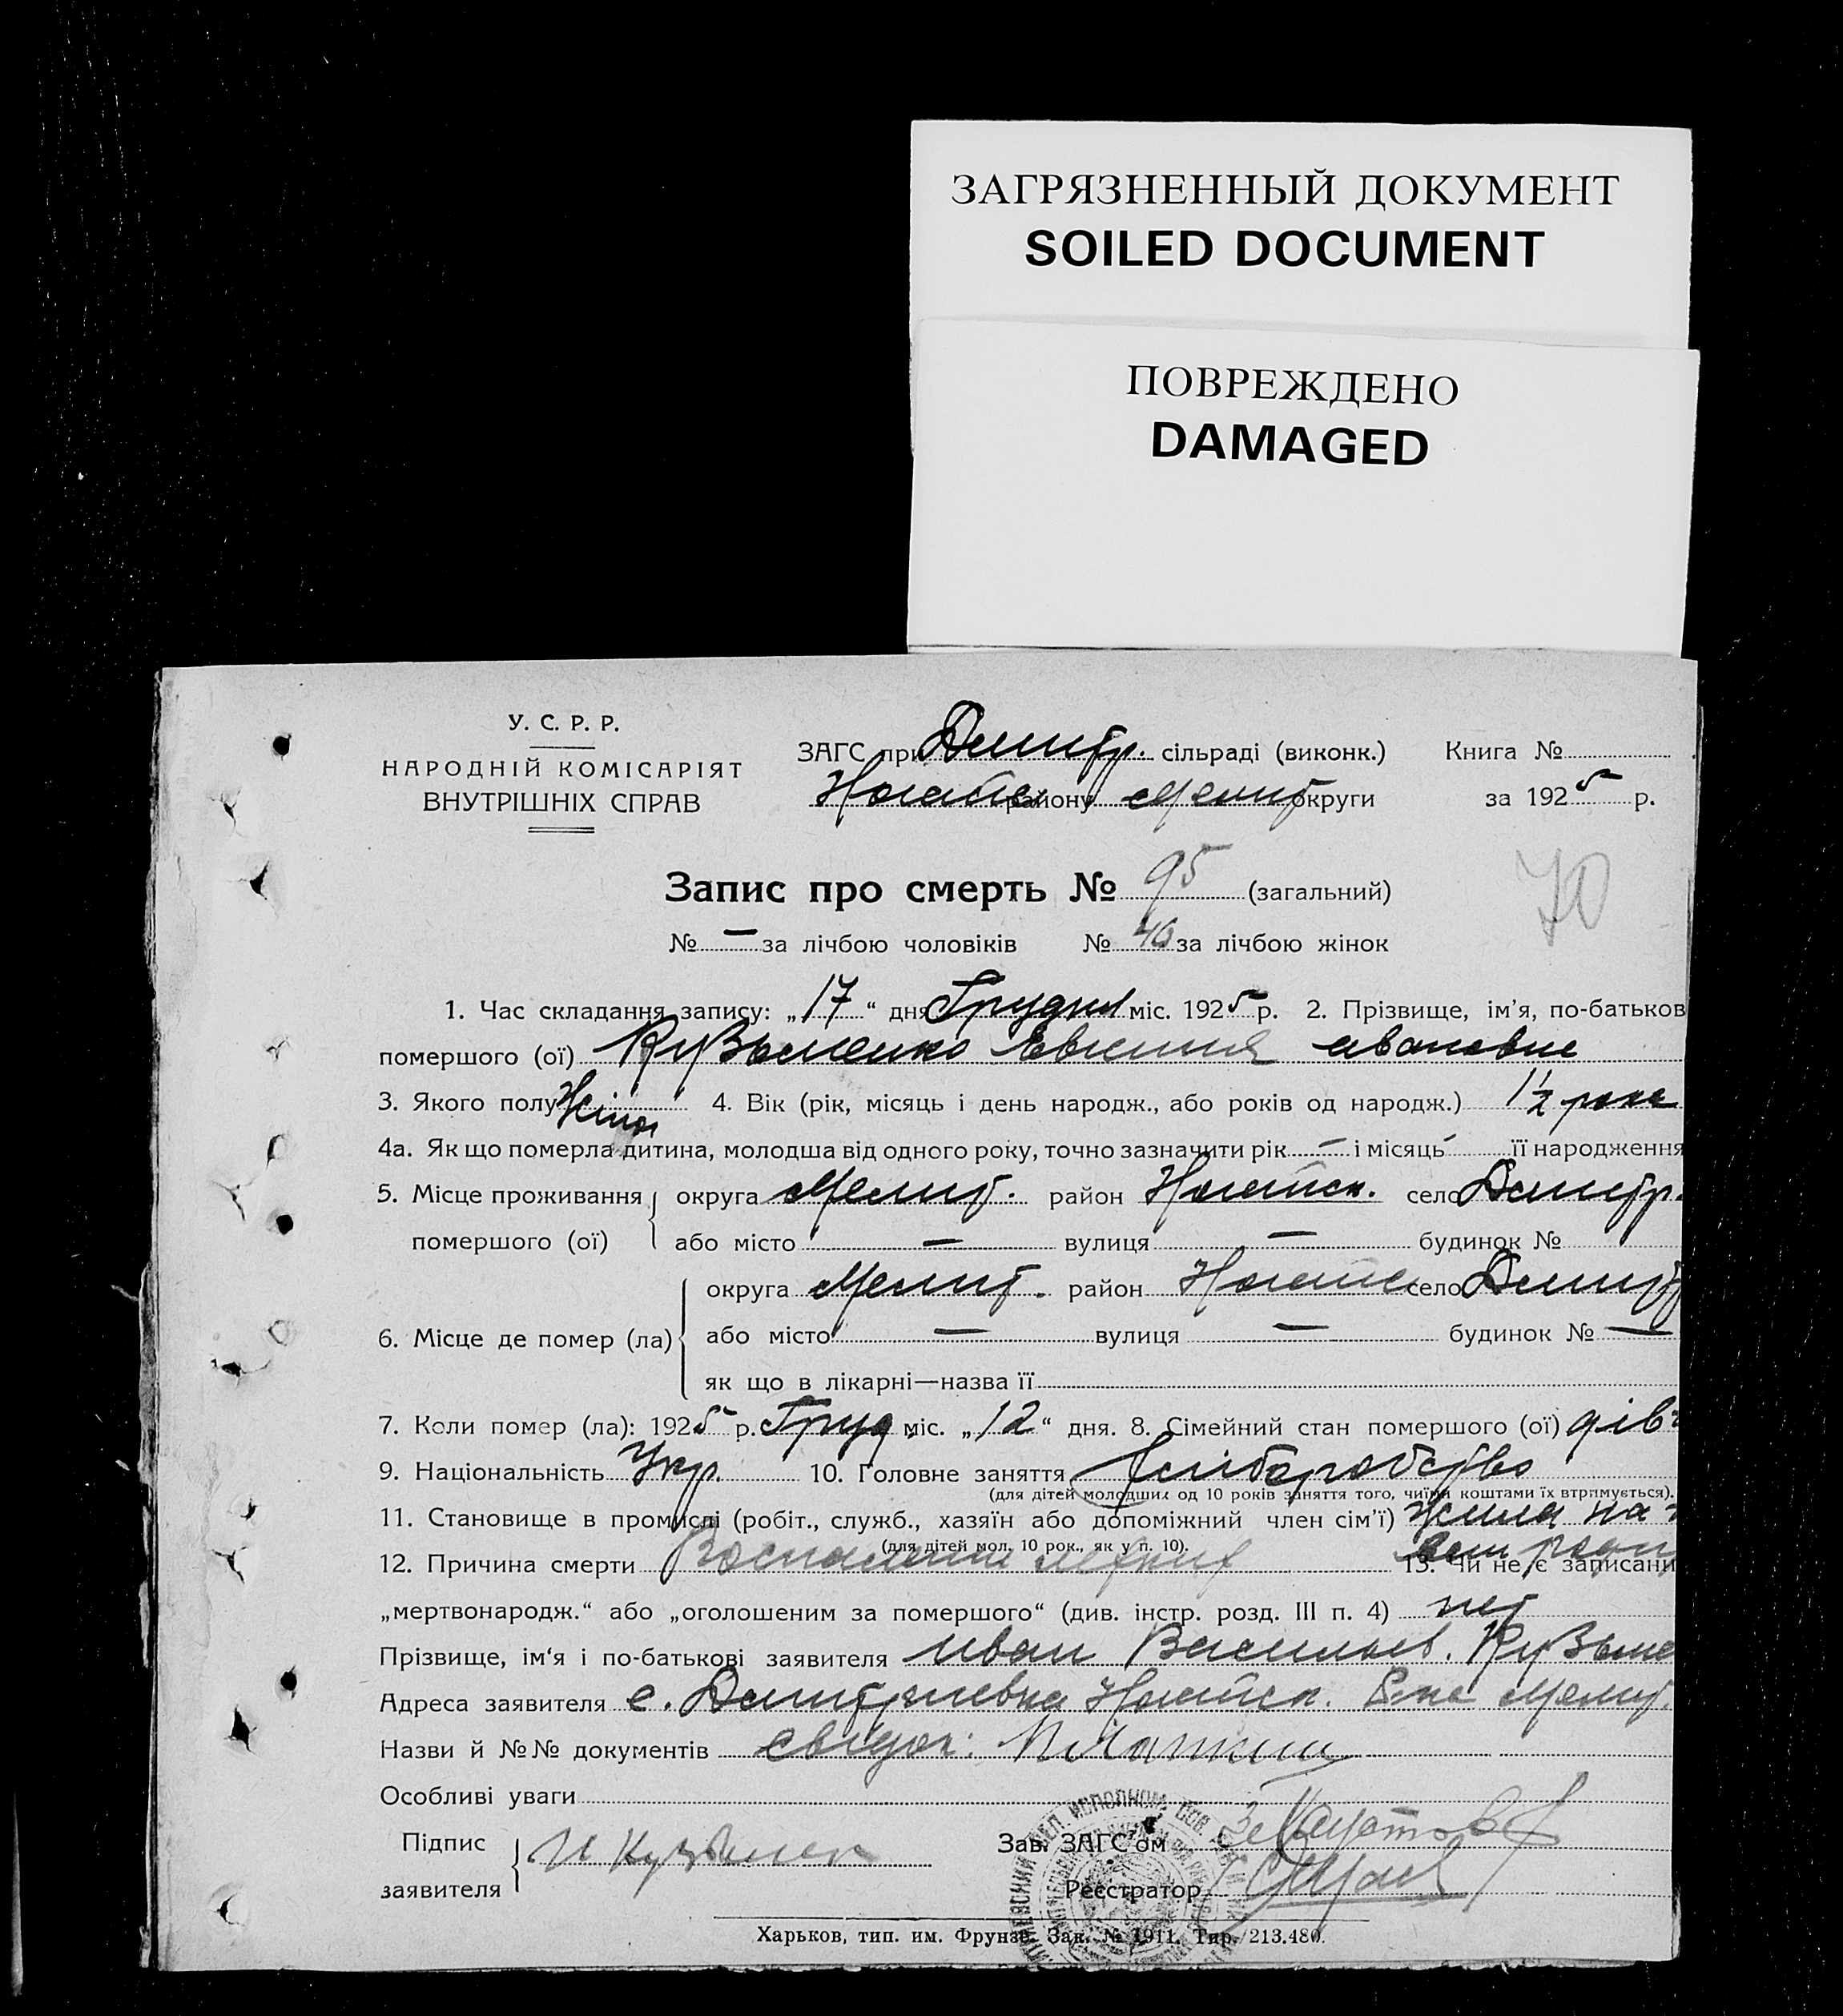 ЗАГРЯЗНЕННЫЙ ДОКУМЕНТ
SOILED DOCUMENT
ПОВРЕЖДЕНО
DAMAGED
У. С. Р. Р.
НАРОДНІЙ КОМІСАРІЯТ
ВНУТРІШНІХ СПРАВ
ЗАГС при Дмитр. сільраді (виконк.) Книга №
Ногайск району Мелит округи за 1925 р.
Запис про смерть № 95 (загальний)
70
№ — за лічбою чоловіків № 46 за лічбою жінок
1. Час складання запису: „17“ дня Грудня міс. 1925 р. 2. Прізвище, ім'я, по-батьков
помершого (ої) Кузьменко Евгения Ивановна
3. Якого полу Жіноч 4. Вік (рік, місяць і день народж., або років од народж.) 1½ рока
4а. Як що померла дитина, молодша від одного року, точно зазначити рік — і місяць — її народження
5. Місце проживання округа Мелит. район Ногайск. село Дмитр.
помершого (ої) або місто — вулиця — будинок №
6. Місце де помер (ла) округа Мелит. район Ногайс село Дмитр
або місто — вулиця — будинок № —
як що в лікарні—назва її
7. Коли помер (ла): 1925 р. Груд міс. „12“ дня. 8. Сімейний стан помершого (ої) дівч
9. Національність Укр. 10. Головне заняття Хліборобство
(для дітей молодших од 10 років заняття того, чиїми коштами їх втримується).
11. Становище в промислі (робіт., служб., хазяїн або допоміжний член сім'ї) жила на
(для дітей мол. 10 рок., як у п. 10).
12. Причина смерти Воспаление легких 13. Чи не є записани
„мертвонародж.“ або „оголошеним за помершого“ (див. інстр. розд. III п. 4) нет
Прізвище, ім'я і по-батькові заявителя Иван Васильев. Кузьме
Адреса заявителя с. Дмитриевка Ногайск. Р-на Мелит.
Назви й №№ документів свідок:
Особливі уваги
Підпис заявителя И Кузьмен
Зав. ЗАГС'ом
Реєстратор
Харьков, тип. им. Фрунзе. Зак. № 1911. Тир. 213.480.